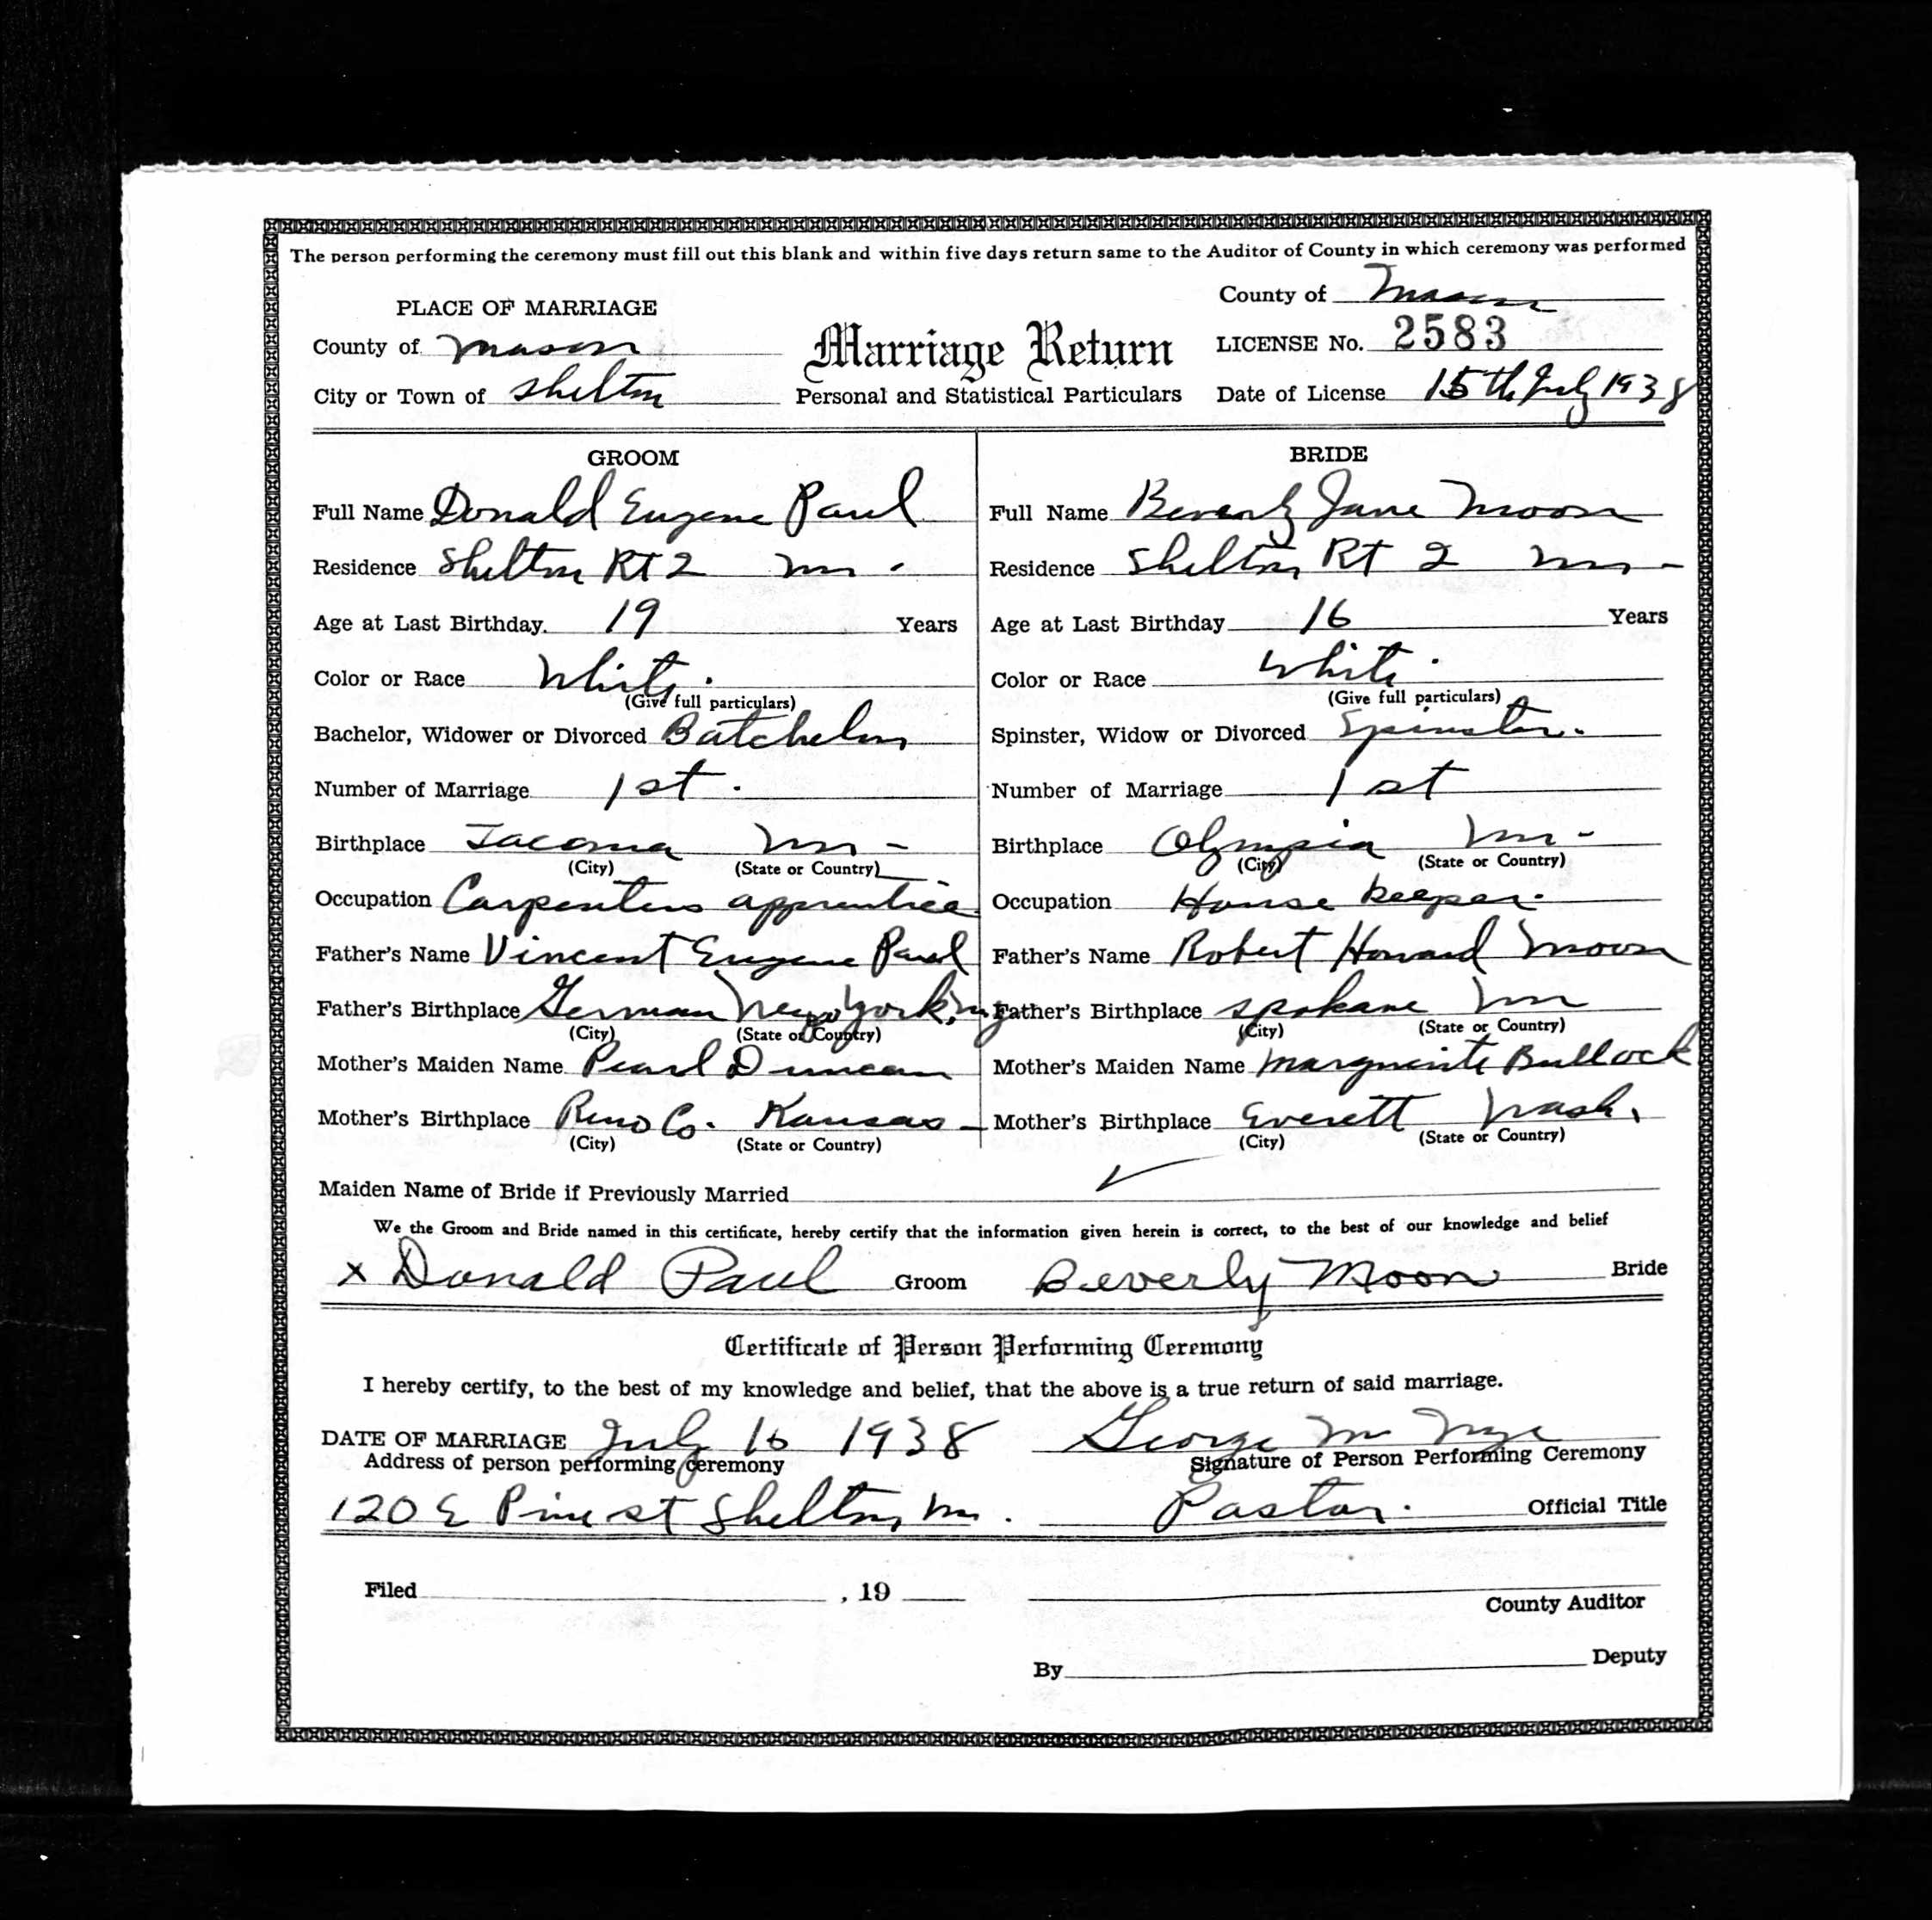 The person performing the ceremony must fill out this blank and within five days return same to the Auditor of County in which ceremony was performed
PLACE OF MARRIAGE
County of Mason
City or Town of Shelton
Marriage Return
Personal and Statistical Particulars
County of Mason
LICENSE No. 2583
Date of License 15th July 1938
GROOM
Full Name Donald Eugene Paul
Residence Shelton Rt 2 Wn.
Age at Last Birthday. 19 Years
Color or Race White.
(Give full particulars)
Bachelor, Widower or Divorced Batchelor
Number of Marriage 1st.
Birthplace Tacoma Wn -
(City) (State or Country)
Occupation Carpenters apprentice
Father's Name Vincent Eugene Paul
Father's Birthplace German New York, ny
(City) (State or Country)
Mother's Maiden Name Pearl Duncan
Mother's Birthplace Reno Co. Kansas -
(City) (State or Country)
BRIDE
Full Name Beverly Jane Moon
Residence Shelton Rt 2 Wn -
Age at Last Birthday 16 Years
Color or Race White.
(Give full particulars)
Spinster, Widow or Divorced Spinster.
Number of Marriage 1st
Birthplace Olympia Wn -
(City) (State or Country)
Occupation House keeper.
Father's Name Robert Howard Moon
Father's Birthplace Spokane Wn
(City) (State or Country)
Mother's Maiden Name Marguerite Bullock
Mother's Birthplace Everett Wash.
(City) (State or Country)
Maiden Name of Bride if Previously Married
We the Groom and Bride named in this certificate, hereby certify that the information given herein is correct, to the best of our knowledge and belief
x Donald Paul Groom Beverly Moon Bride
Certificate of Person Performing Ceremony
I hereby certify, to the best of my knowledge and belief, that the above is a true return of said marriage.
DATE OF MARRIAGE July 16 1938 George M Nye
Address of person performing ceremony Signature of Person Performing Ceremony
120 E Pine st Shelton, Wn. Pastor. Official Title
Filed , 19
County Auditor
By Deputy